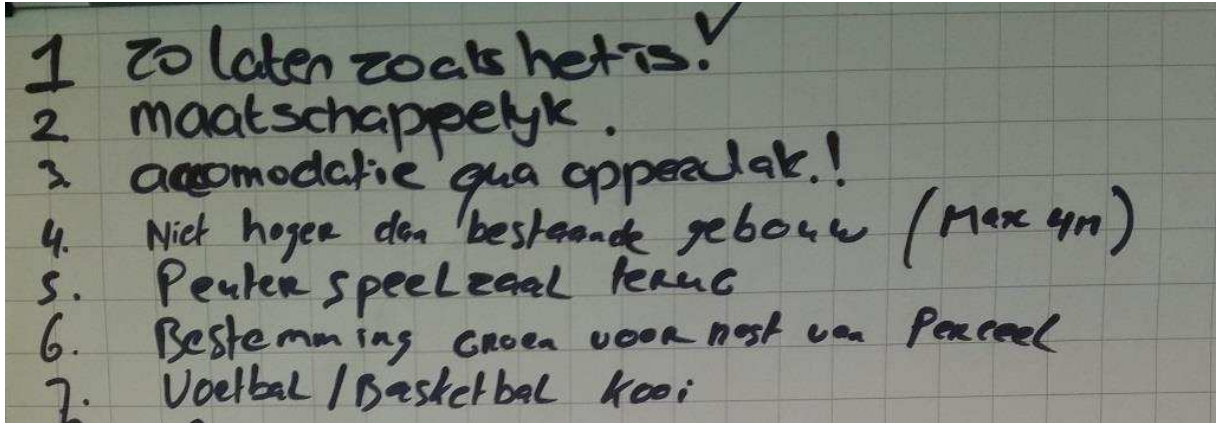 1 zo laten zoals het is.
2 maatschappelyk.
3. accomodatie qua oppervlak.!
4. Niet hoger dan bestaande gebouw (Max 4m)
5. Peuter speelzaal terug
6. Bestemming groen voor rest van Perceel
7. Voetbal / Basketbal kooi